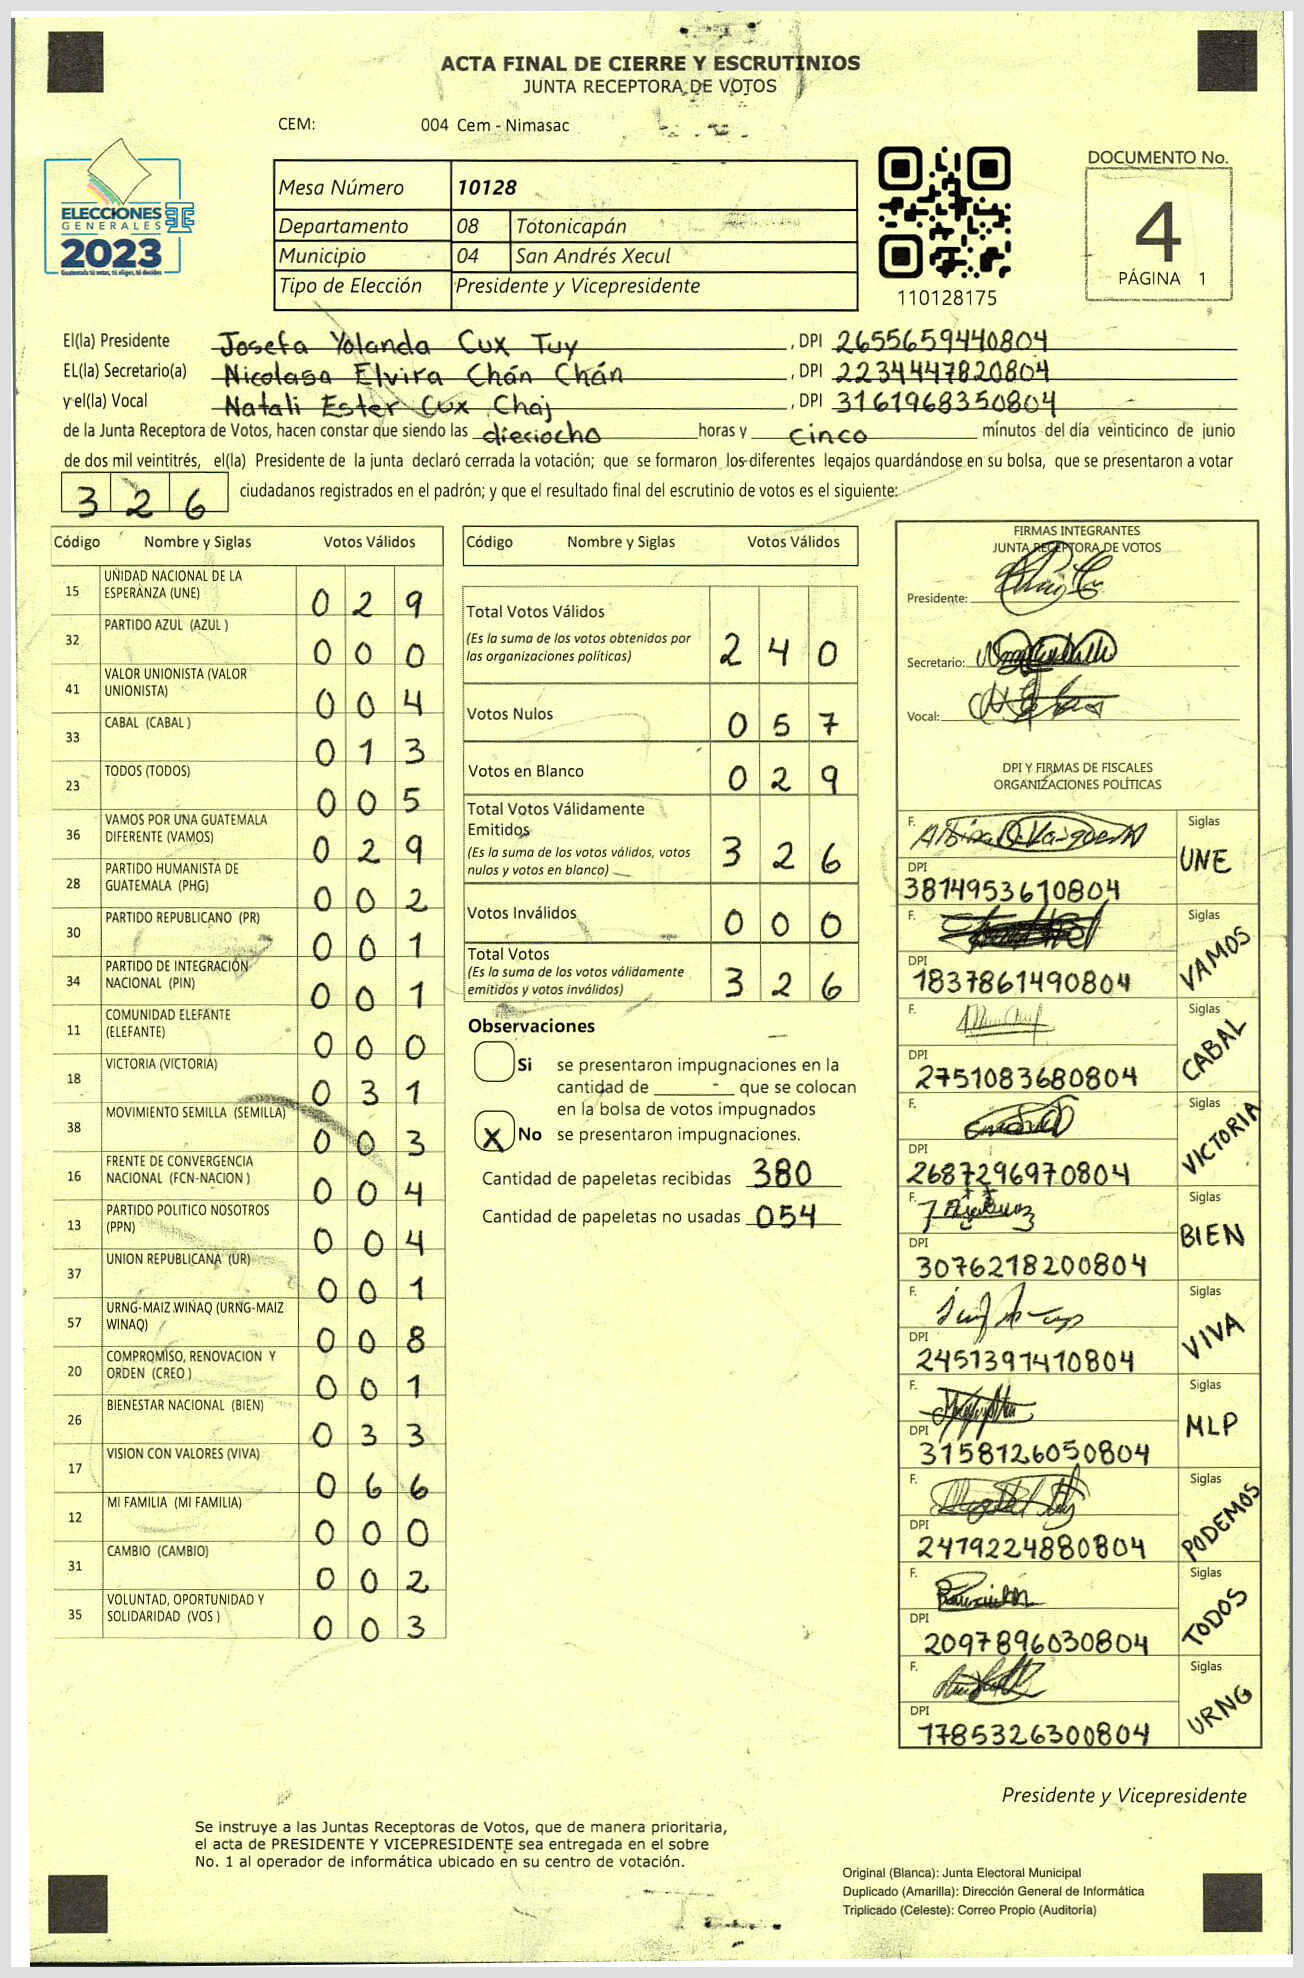 ACTA FINAL DE CIERRE Y ESCRUTINIOS
JUNTA RECEPTORA DE VOTOS
CEM: 004 Cem - Nimasac
ELECCIONES
GENERALES
2023
Guatemala tú votas, tú eliges, tú decides
Mesa Número 10128
Departamento 08 Totonicapán
Municipio 04 San Andrés Xecul
Tipo de Elección Presidente y Vicepresidente
110128175
DOCUMENTO No.
4
PÁGINA 1
El(la) Presidente Josefa Yolanda Cux Tuy, DPI 2655659440804
EL(la) Secretario(a) Nicolasa Elvira Chán Chán, DPI 2234447820804
y el(la) Vocal Natali Ester Cux Chaj, DPI 3161968350804
de la Junta Receptora de Votos, hacen constar que siendo las dieciocho horas y cinco minutos del día veinticinco de junio
de dos mil veintitrés, el(la) Presidente de la junta declaró cerrada la votación; que se formaron los diferentes legajos guardándose en su bolsa, que se presentaron a votar
326 ciudadanos registrados en el padrón; y que el resultado final del escrutinio de votos es el siguiente:
Código Nombre y Siglas Votos Válidos
15 UNIDAD NACIONAL DE LA ESPERANZA (UNE) 0 2 9
32 PARTIDO AZUL (AZUL ) 0 0 0
41 VALOR UNIONISTA (VALOR UNIONISTA) 0 0 4
33 CABAL (CABAL ) 0 1 3
23 TODOS (TODOS) 0 0 5
36 VAMOS POR UNA GUATEMALA DIFERENTE (VAMOS) 0 2 9
28 PARTIDO HUMANISTA DE GUATEMALA (PHG) 0 0 2
30 PARTIDO REPUBLICANO (PR) 0 0 1
34 PARTIDO DE INTEGRACIÓN NACIONAL (PIN) 0 0 1
11 COMUNIDAD ELEFANTE (ELEFANTE) 0 0 0
18 VICTORIA (VICTORIA) 0 3 1
38 MOVIMIENTO SEMILLA (SEMILLA) 0 0 3
16 FRENTE DE CONVERGENCIA NACIONAL (FCN-NACION ) 0 0 4
13 PARTIDO POLITICO NOSOTROS (PPN) 0 0 4
37 UNION REPUBLICANA (UR) 0 0 1
57 URNG-MAIZ WINAQ (URNG-MAIZ WINAQ) 0 0 8
20 COMPROMISO, RENOVACION Y ORDEN (CREO ) 0 0 1
26 BIENESTAR NACIONAL (BIEN) 0 3 3
17 VISION CON VALORES (VIVA) 0 6 6
12 MI FAMILIA (MI FAMILIA) 0 0 0
31 CAMBIO (CAMBIO) 0 0 2
35 VOLUNTAD, OPORTUNIDAD Y SOLIDARIDAD (VOS ) 0 0 3
Código Nombre y Siglas Votos Válidos
Total Votos Válidos 2 4 0
(Es la suma de los votos obtenidos por
las organizaciones políticas)
Votos Nulos 0 5 7
Votos en Blanco 0 2 9
Total Votos Válidamente
Emitidos 3 2 6
(Es la suma de los votos válidos, votos
nulos y votos en blanco)
Votos Inválidos 0 0 0
Total Votos 3 2 6
(Es la suma de los votos válidamente
emitidos y votos inválidos)
Observaciones
Si se presentaron impugnaciones en la
cantidad de - que se colocan
en la bolsa de votos impugnados
X No se presentaron impugnaciones.
Cantidad de papeletas recibidas 380
Cantidad de papeletas no usadas 054
FIRMAS INTEGRANTES
JUNTA RECEPTORA DE VOTOS
Presidente:
Secretario:
Vocal:
DPI Y FIRMAS DE FISCALES
ORGANIZACIONES POLÍTICAS
F. Siglas
DPI 3814953610804 UNE
F. Siglas
DPI 1837861490804 VAMOS
F. Siglas
DPI 2751083680804 CABAL
F. Siglas
DPI 2687296970804 VICTORIA
F. Siglas
DPI 3076218200804 BIEN
F. Siglas
DPI 2451391410804 VIVA
F. Siglas
DPI 3158126050804 MLP
F. Siglas
DPI 2419224880804 PODEMOS
F. Siglas
DPI 2097896030804 TODOS
F. Siglas
DPI 1785326300804 URNG
Presidente y Vicepresidente
Se instruye a las Juntas Receptoras de Votos, que de manera prioritaria,
el acta de PRESIDENTE Y VICEPRESIDENTE sea entregada en el sobre
No. 1 al operador de informática ubicado en su centro de votación.
Original (Blanca): Junta Electoral Municipal
Duplicado (Amarilla): Dirección General de Informática
Triplicado (Celeste): Correo Propio (Auditoría)